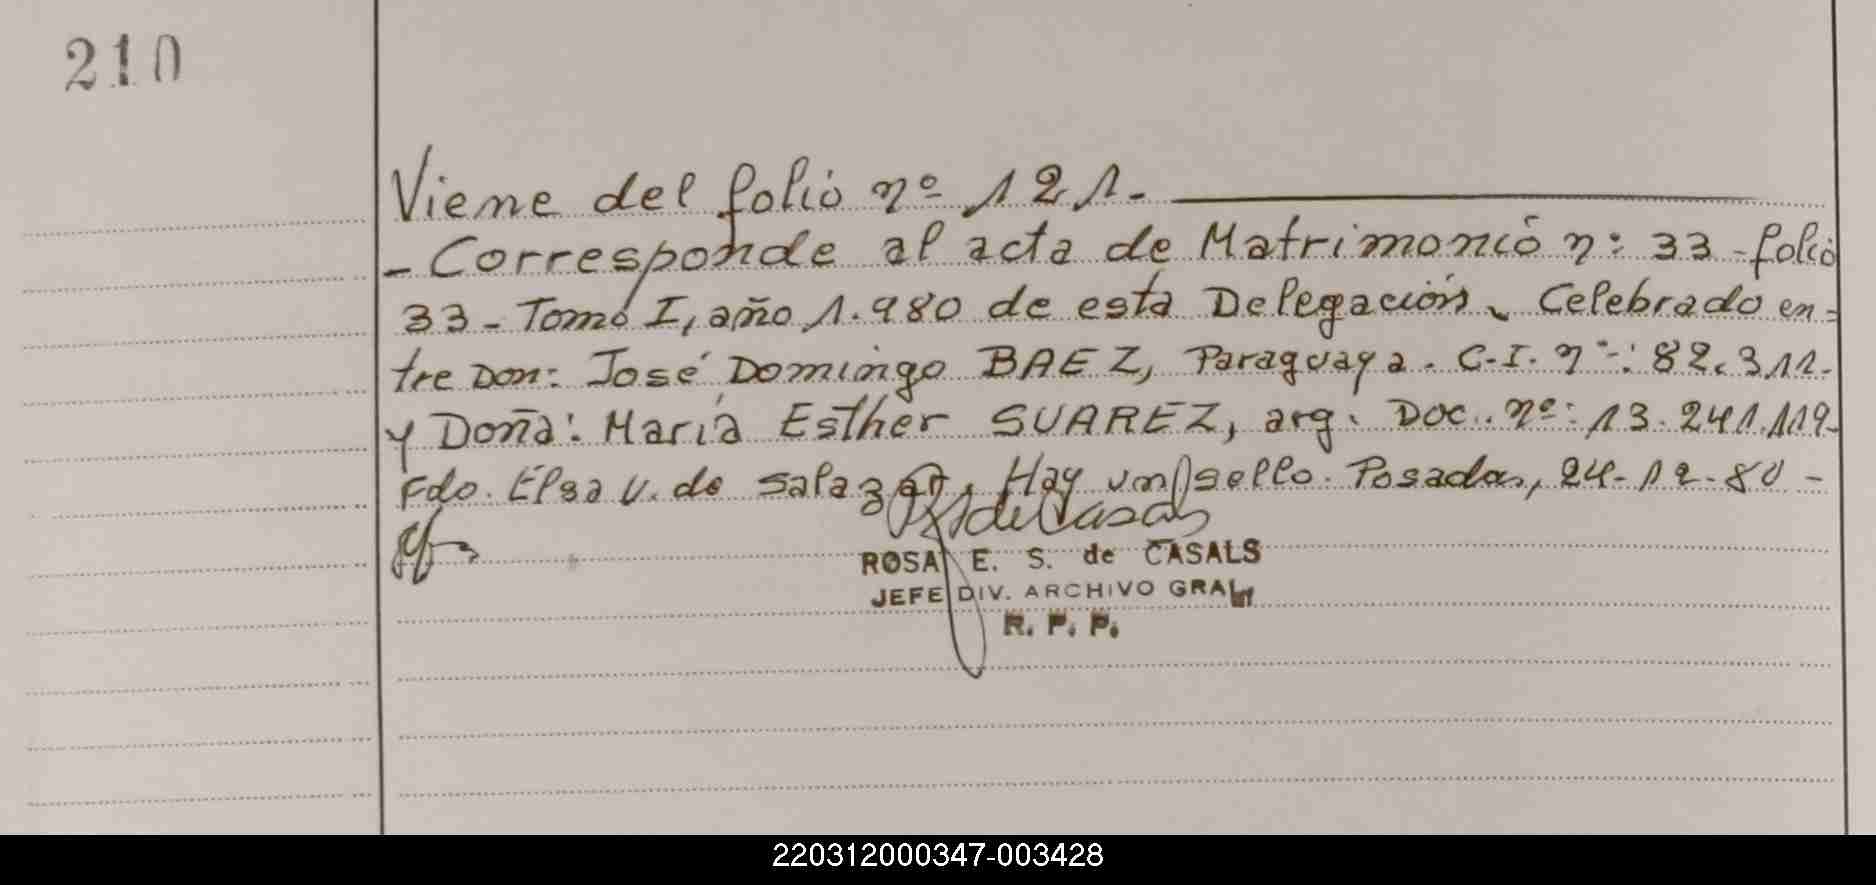 210
Viene del folio nº 121.-
- Corresponde al acta de Matrimonio nº: 33 - folio
33 - Tomo I, año 1.980 de esta Delegación. Celebrado en=
tre Don: José Domingo BAEZ, Paraguaya. C.I. nº: 82.311.-
y Doña: María Esther SUAREZ, arg. Doc. nº: 13.241.119-
Fdo. Elsa V. de Salazar, Hay un sello. Posadas, 24-12-80 -
ROSA E. S. de CASALS
JEFE DIV. ARCHIVO GRAL
R. P. P.
220312000347-003428